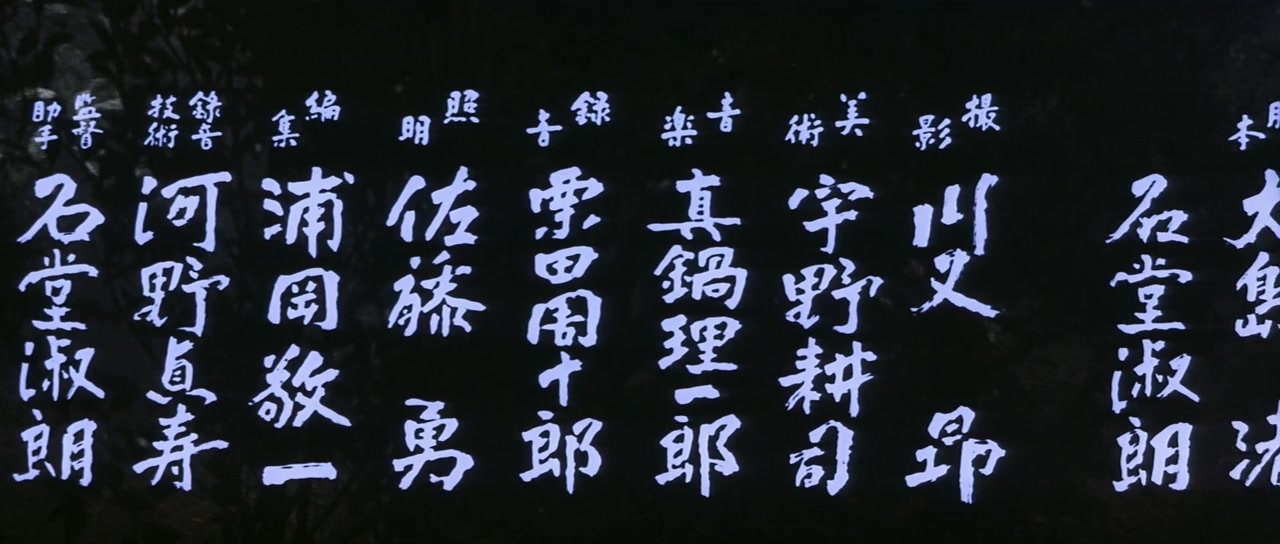 脚本
大島渚
石堂淑朗
撮影
川又昻
美術
宇野耕司
音楽
真鍋理一郎
録音
栗田周十郎
照明
佐藤勇
編集
浦岡敬一
録音技術
河野眞寿
監督助手
石堂淑朗